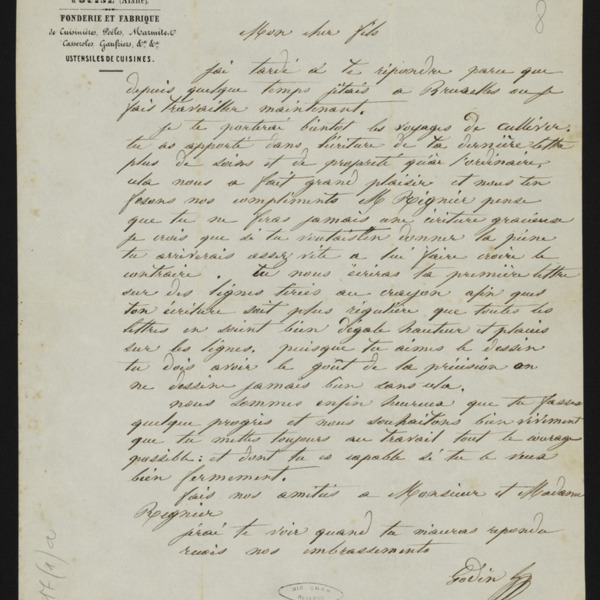 GUISE (Aisne)
FONDERIE ET FABRIQUE
de Cuisinières, Poêles, Marmites,
Casseroles, Gaufriers, &c. &c.
USTENSILES DE CUISINES.
8
Mon cher fils
j'ai tardé à te répondre parce que
depuis quelque temps j'étais a Bruxelles ou je
fais travailler maintenant.
je te porterai bientôt les voyages de Culliver.
tu as apporté dans l'écriture de ta dernière lettre
plus de soins et de propreté qu'à l'ordinaire,
cela nous a fait grand plaisir et nous t'en
fesons nos compliments M Regnier pense
que tu ne feras jamais une écriture gracieuse
je crois que si tu voulais t'en donner la peine
tu arriverais assez vite a lui faire croire le
contraire. tu nous écriras ta première lettre
sur des lignes tirées au crayon afin que
ton écriture soit plus régulière que toutes les
lettres en soient bien d'égale hauteur et placées
sur les lignes. puisque tu aimes le dessin
tu dois avoir le goût de la précision on
ne dessine jamais bien sans cela.
nous sommes enfin heureux que tu fasses
quelque progrès et nous souhaitons bien vivement
que tu mettes toujours au travail tout le courage
possible : et dont tu es capable si tu le veux
bien fermement.
fais nos amitiés a Monsieur et Madame
Regnier
j'irai te voir quand tu m'auras repondu
reçois nos embrassements
Godin